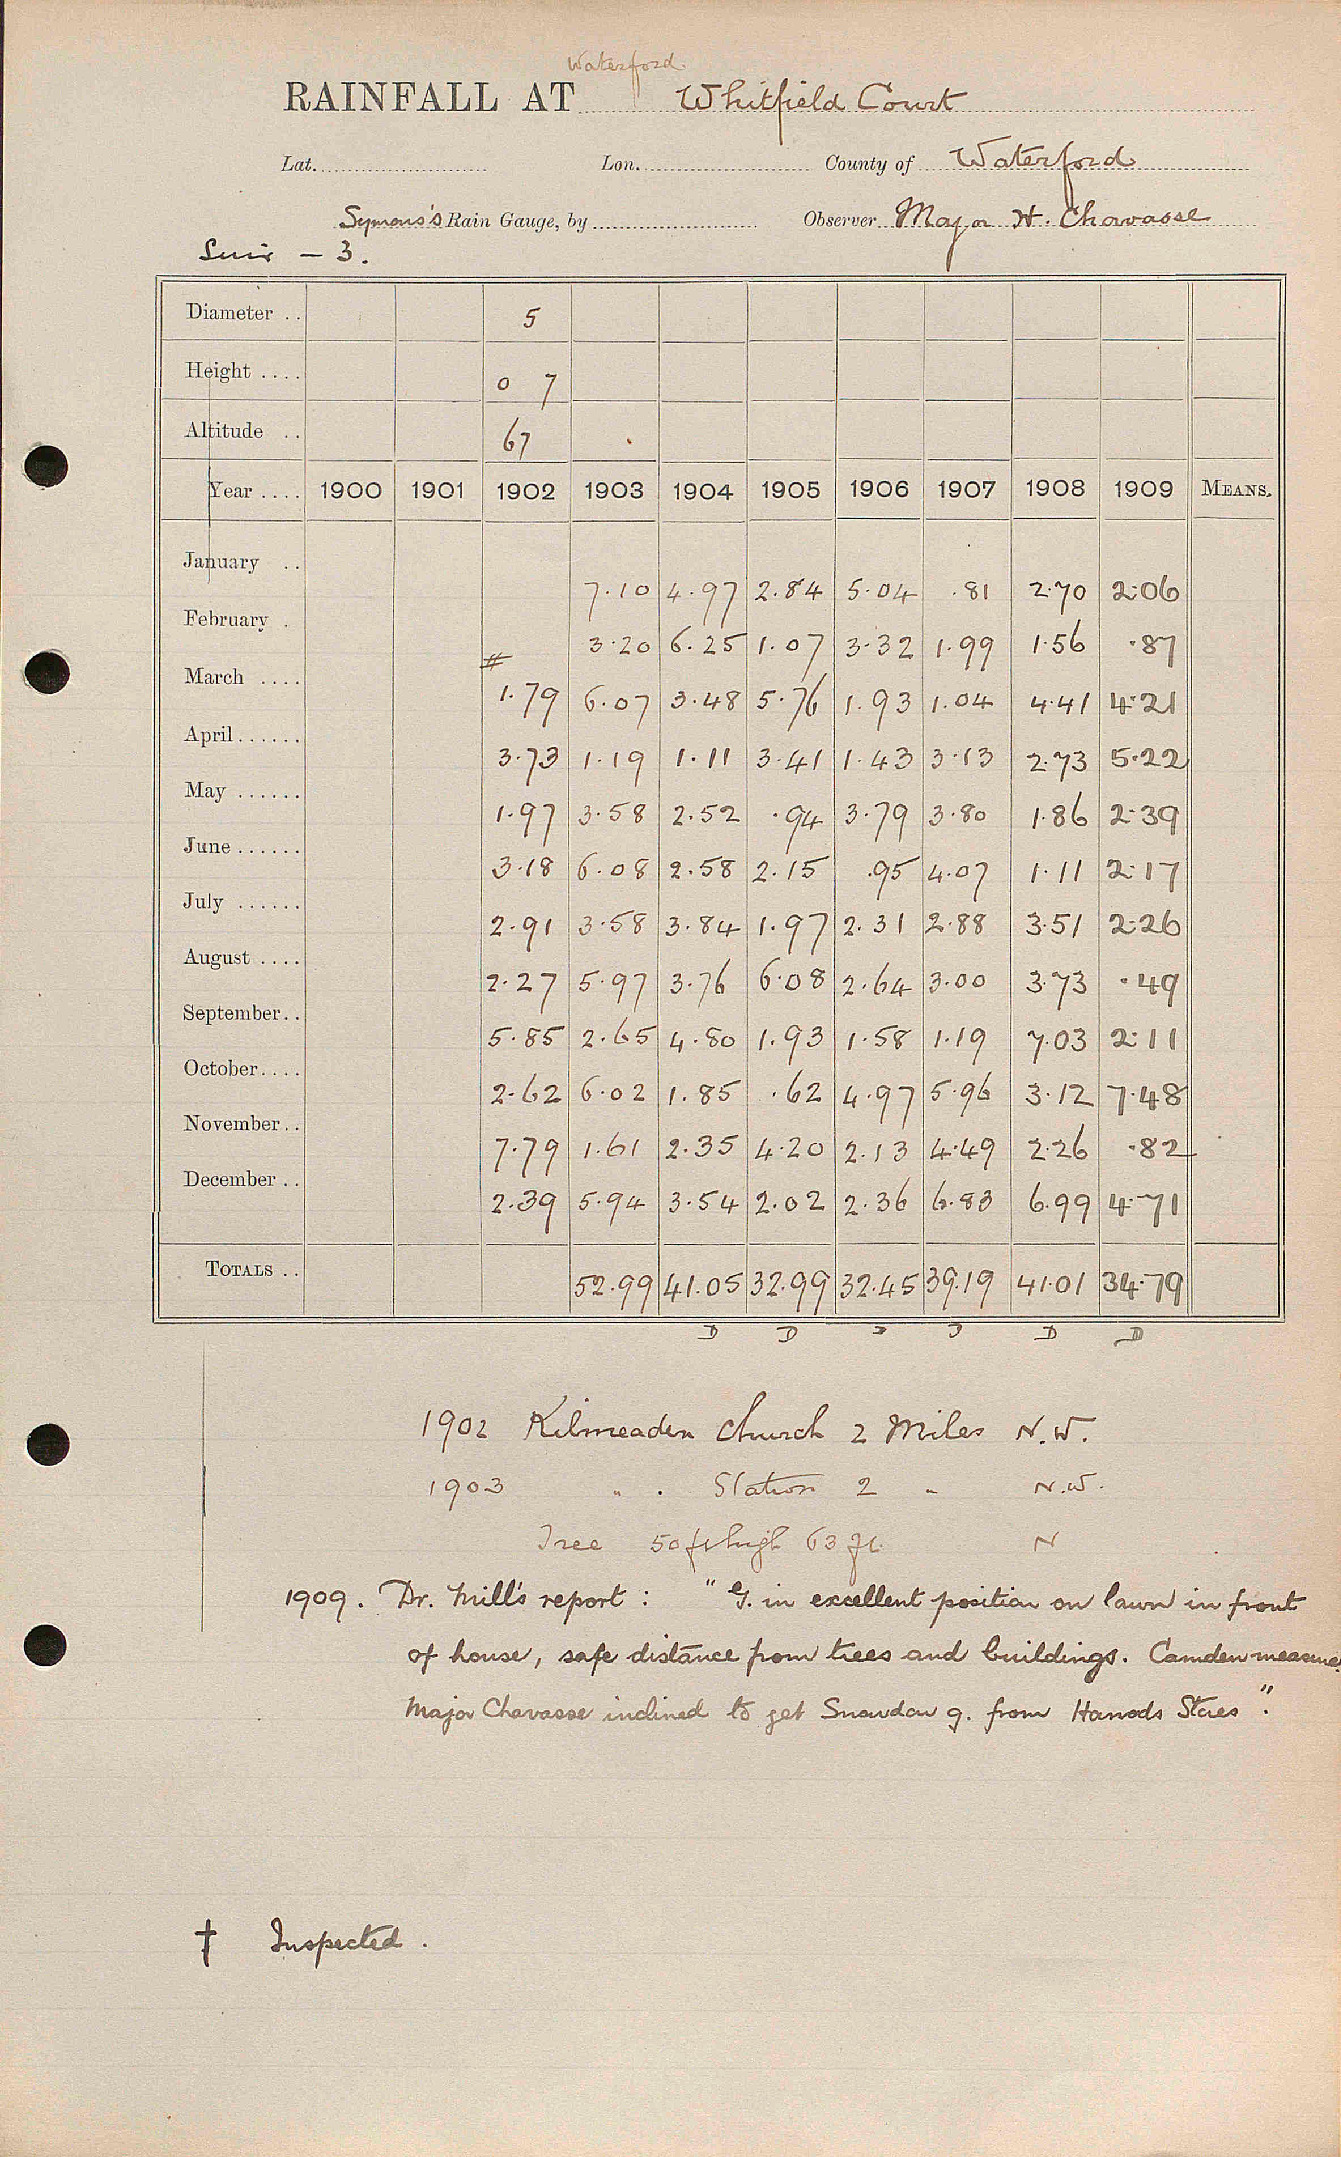 Waterford
RAINFALL AT Whitfield Court
Lat. Lon. County of Waterford
Symons's Rain Gauge, by Observer Major H. Chavasse
Suir – 3.
Diameter .. 5
Height .... 0 7
Altitude .. 67
Year .... 1900 1901 1902 1903 1904 1905 1906 1907 1908 1909 MEANS.
January .. 7.10 4.97 2.84 5.04 .81 2.70 2.06
February . 3.20 6.25 1.07 3.32 1.99 1.56 .87
#
March .... 1.79 6.07 3.48 5.76 1.93 1.04 4.41 4.21
April...... 3.73 1.19 1.11 3.41 1.43 3.13 2.73 5.22
May ...... 1.97 3.58 2.52 .94 3.79 3.80 1.86 2.39
June...... 3.18 6.08 2.58 2.15 .95 4.07 1.11 2.17
July ...... 2.91 3.58 3.84 1.97 2.31 2.88 3.51 2.26
August .... 2.27 5.97 3.76 6.08 2.64 3.00 3.73 .49
September.. 5.85 2.65 4.80 1.93 1.58 1.19 7.03 2.11
October.... 2.62 6.02 1.85 .62 4.97 5.96 3.12 7.48
November.. 7.79 1.61 2.35 4.20 2.13 4.49 2.26 .82
December .. 2.39 5.94 3.54 2.02 2.36 6.83 6.99 4.71
TOTALS .. 52.99 41.05 32.99 32.45 39.19 41.01 34.79
D D D D D D
1902 Kilmeaden Church 2 Miles N.W.
1903 " . Station 2 " N.W.
Tree 50 ft high 63 ft. N
1909. Dr. Mill's report : "G. in excellent position on lawn in front
of house, safe distance from trees and buildings. Camden measure
Major Chavasse inclined to get Snowdon g. from Harrods Stores".
† Inspected.